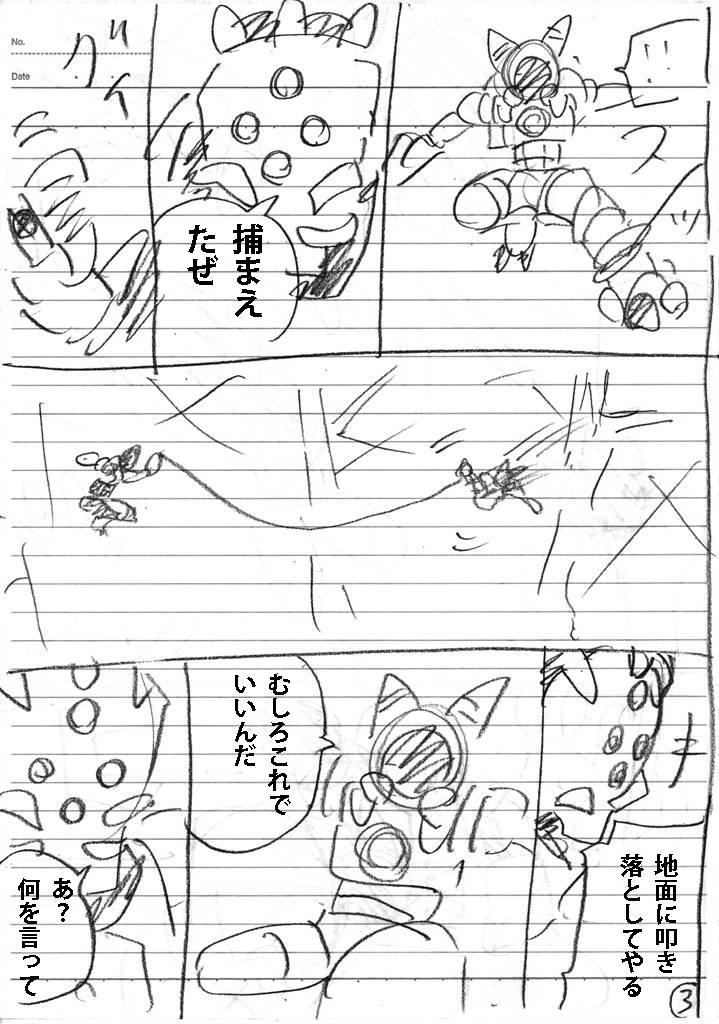 No.
Date
!!
スッ
捕まえ
たぜ
グイ
地面に叩き
落としてやる
むしろこれで
いいんだ
あ?
何を言って
3